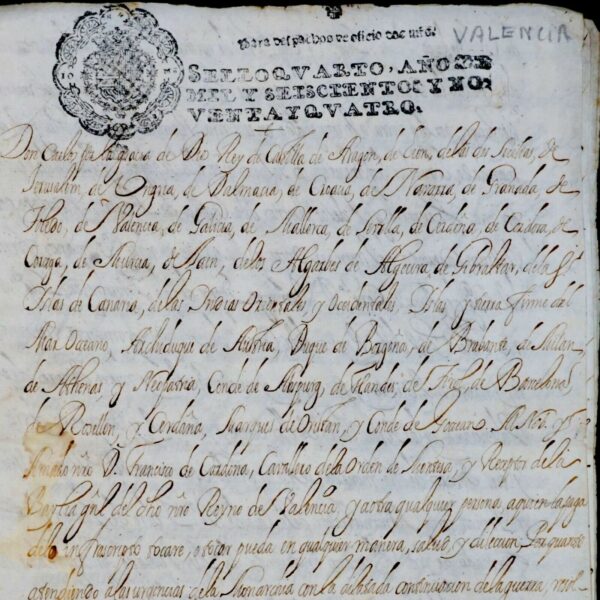 VALENCIA
Para despachos de oficio dos mrs.
SELLOQVARTO, AÑODE
MIL Y SEISCIENTOS Y NO-
VENTAYQVATRO.
Don Carlos por la gracia de Dios Rey de Castilla de Aragon, de Leon, de las dos Sicilias, de
Jerusalem, de Ungria, de Dalmacia, de Croacia, de Navarra, de Granada, de
Toledo, de Valencia, de Galicia, de Mallorca, de Sevilla, de Cerdeña, de Cordova, de
Corzega, de Murcia, de Jaen, delos Algarbes de Algecira, de Gibraltar, dela
Islas de Canaria, delas Indias Orientales, y Ocidentales, Islas y tierra firme del
Mar Oceano, Archiduque de Austria, Duque de Borgoña, de Brabante, de Milan
de Athenas, y Neopatria, Conde de Abspurg, de Flandes, de Tirol, de Barcelona
de Rosellon, y Cerdaña, Marques de Oristan, y Conde de Goceano. Al
Amado nro D. Francisco de Cardona, Cavallero dela Orden de Montesa, y Receptor dela
Baylia gñl del dho nro Reyno de Valencia, y a otra qualquier persona aquien lo
delo infraescrito tocare, o tocar pueda en qualquier manera, salud, y dileccion, Por quanto
atendiendo a las urgencias dela Monarchia con la dilatada continuacion dela guerra,